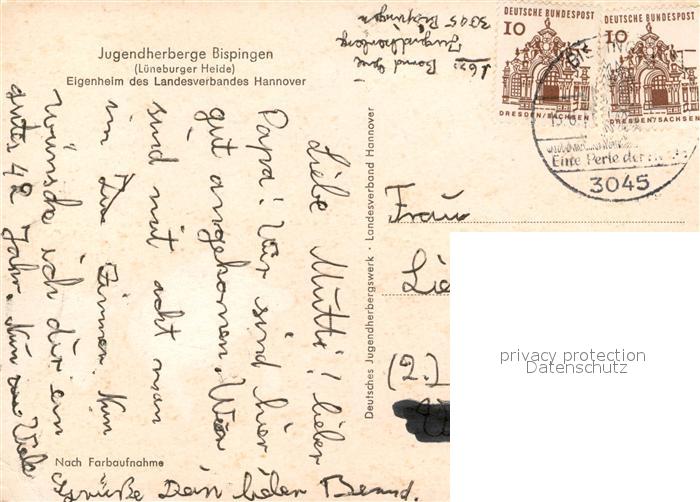 Jugendherberge Bispingen
(Lüneburger Heide)
Eigenheim des Landesverbandes Hannover
Bernd
Jugendherberge
3045 Bispingen
DEUTSCHE BUNDESPOST
10
DRESDEN/SACHSEN
DEUTSCHE BUNDESPOST
10
DRESDEN/SACHSEN
Eine Perle der
3045
Liebe Mutti! lieber
Papa! Wir sind hier
gut angekomen. Wir
sind mit acht man
im Zimmer. Nun
wünsche ich dir ein
gutes 42 Jahr. Nun Viele
Grüße Dein lieber Bernd.
Deutsches Jugendherbergswerk · Landesverband Hannover
Frau
Lie
(2.)
privacy protection
Datenschutz
Nach Farbaufnahme